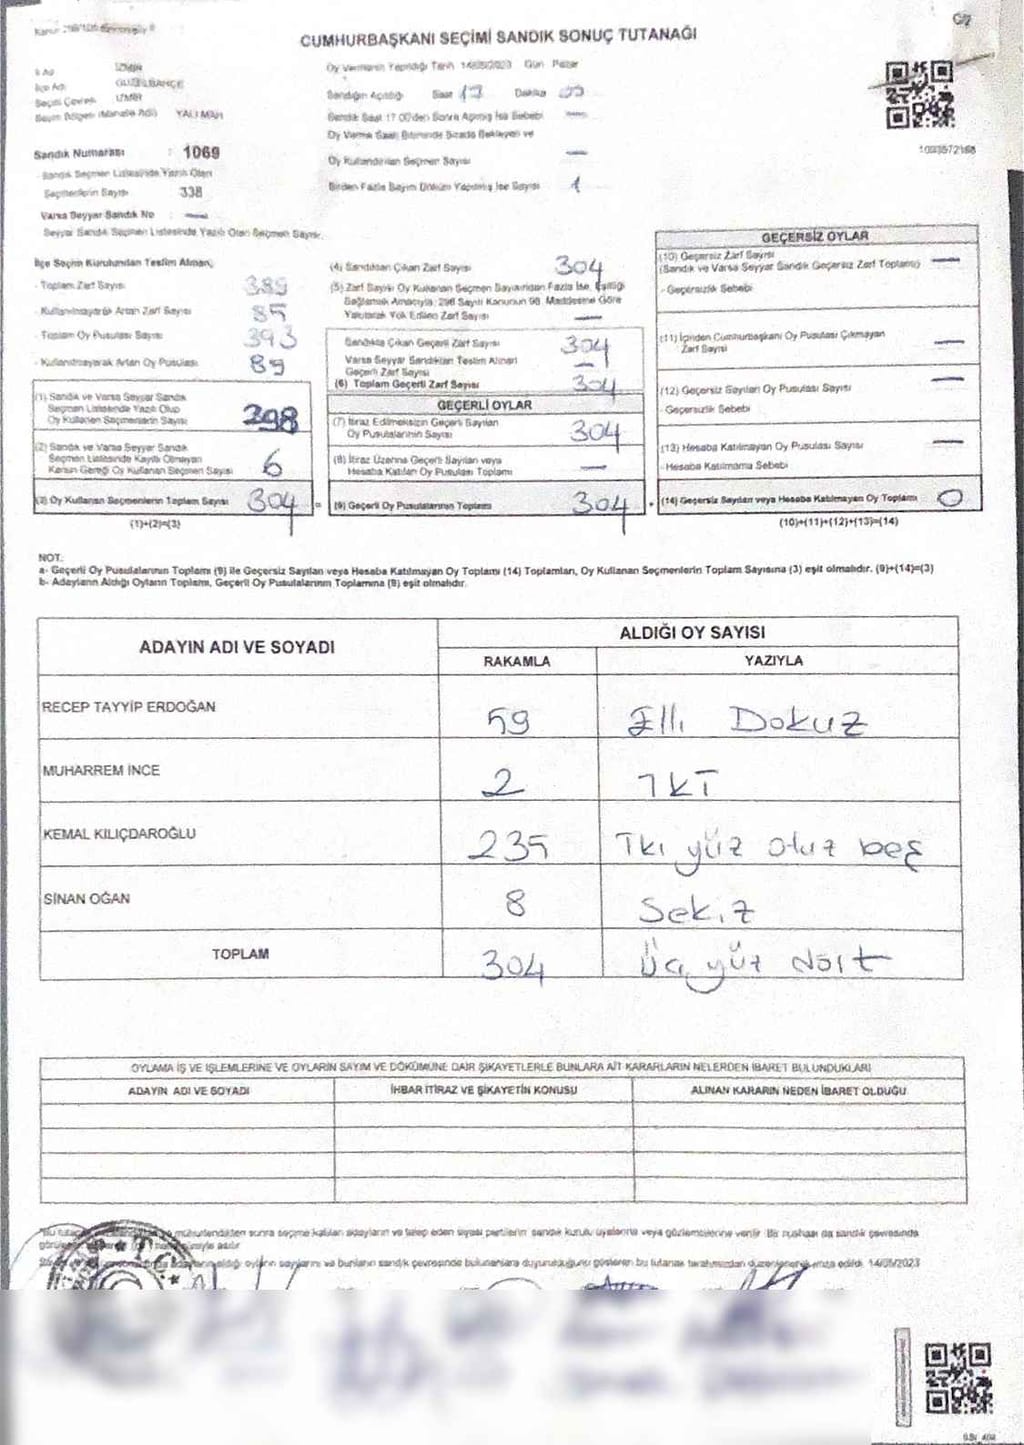 CUMHURBAŞKANI SEÇİMİ SANDIK SONUÇ TUTANAĞI
İl Adı İZMİR
İlçe Adı GÜZELBAHÇE
Seçim Çevresi İZMİR
Seçim Bölgesi (Mahalle Adı) YALI MAH
Sandık Numarası : 1069
Sandık Seçmen Listesinde Yazılı Olan
Seçmenlerin Sayısı 338
Varsa Seyyar Sandık No : —
Seyyar Sandık Seçmen Listesinde Yazılı Olan Seçmen Sayısı:
Oy Vermenin Yapıldığı Tarih 14/05/2023 Gün Pazar
Sandığın Açıldığı Saat 17 Dakika
Sandık Saat 17.00'den Sonra Açılmış İse Sebebi —
Oy Verme Saati Bitiminde Sırada Bekleyen ve
Oy Kullandırılan Seçmen Sayısı —
Birden Fazla Sayım Döküm Yapılmış İse Sayısı 1
İlçe Seçim Kurulundan Teslim Alınan;
- Toplam Zarf Sayısı 389
- Kullanılmayarak Artan Zarf Sayısı 85
- Toplam Oy Pusulası Sayısı 393
- Kullanılmayarak Artan Oy Pusulası 89
(1) Sandık ve Varsa Seyyar Sandık
Seçmen Listesinde Yazılı Olup
Oy Kullanan Seçmenlerin Sayısı 298
(2) Sandık ve Varsa Seyyar Sandık
Seçmen Listesinde Kayıtlı Olmayan
Kanun Gereği Oy Kullanan Seçmen Sayısı 6
(3) Oy Kullanan Seçmenlerin Toplam Sayısı 304
(1)+(2)=(3)
(4) Sandıktan Çıkan Zarf Sayısı 304
(5) Zarf Sayısı Oy Kullanan Seçmen Sayısından Fazla İse, Eşitliği
Sağlamak Amacıyla; 298 Sayılı Kanunun 98. Maddesine Göre
Yakılarak Yok Edilen Zarf Sayısı —
Sandıkta Çıkan Geçerli Zarf Sayısı 304
Varsa Seyyar Sandıktan Teslim Alınan
Geçerli Zarf Sayısı —
(6) Toplam Geçerli Zarf Sayısı 304
GEÇERLİ OYLAR
(7) İtiraz Edilmeksizin Geçerli Sayılan
Oy Pusulalarının Sayısı 304
(8) İtiraz Üzerine Geçerli Sayılan veya
Hesaba Katılan Oy Pusulası Toplamı —
= (9) Geçerli Oy Pusulalarının Toplamı 304
GEÇERSİZ OYLAR
(10) Geçersiz Zarf Sayısı —
(Sandık ve Varsa Seyyar Sandık Geçersiz Zarf Toplamı)
- Geçersizlik Sebebi
(11) İçinden Cumhurbaşkanı Oy Pusulası Çıkmayan
Zarf Sayısı —
(12) Geçersiz Sayılan Oy Pusulası Sayısı —
- Geçersizlik Sebebi
(13) Hesaba Katılmayan Oy Pusulası Sayısı —
- Hesaba Katılmama Sebebi
+ (14) Geçersiz Sayılan veya Hesaba Katılmayan Oy Toplamı 0
(10)+(11)+(12)+(13)=(14)
NOT.
a- Geçerli Oy Pusulalarının Toplamı (9) ile Geçersiz Sayılan veya Hesaba Katılmayan Oy Toplamı (14) Toplamları, Oy Kullanan Seçmenlerin Toplam Sayısına (3) eşit olmalıdır. (9)+(14)=(3)
b- Adayların Aldığı Oyların Toplamı, Geçerli Oy Pusulalarının Toplamına (9) eşit olmalıdır.
ADAYIN ADI VE SOYADI ALDIĞI OY SAYISI
RAKAMLA YAZIYLA
RECEP TAYYİP ERDOĞAN 59 Elli Dokuz
MUHARREM İNCE 2 İKİ
KEMAL KILIÇDAROĞLU 235 İki yüz otuz beş
SİNAN OĞAN 8 Sekiz
TOPLAM 304 Üç yüz dört
OYLAMA İŞ VE İŞLEMLERİNE VE OYLARIN SAYIM VE DÖKÜMÜNE DAİR ŞİKAYETLERLE BUNLARA AİT KARARLARIN NELERDEN İBARET BULUNDUKLARI
ADAYIN ADI VE SOYADI İHBAR İTİRAZ VE ŞİKAYETİN KONUSU ALINAN KARARIN NEDEN İBARET OLDUĞU
mühürlendikten sonra seçime katılan adayların ve talep eden siyasi partilerin sandık kurulu üyelerine veya gözlemcilerine verilir. Bir nushası da sandık çevresinde
aldığı oyların sayılarını ve bunların sandık çevresinde bulunanlara duyurulduğunu gösteren bu tutanak tarafımızdan düzenlenerek imza edildi. 14/05/2023
T.C.